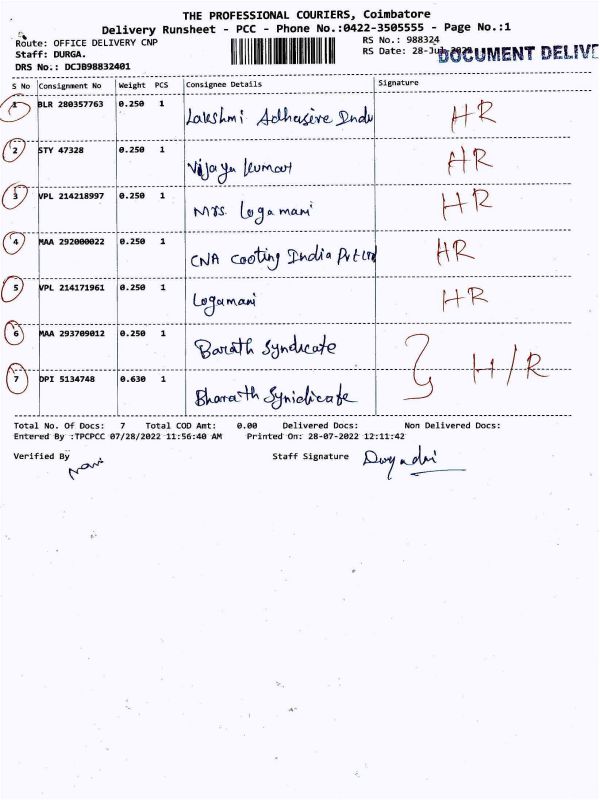 THE PROFESSIONAL COURIERS, Coimbatore
Delivery Runsheet - PCC - Phone No.:0422-3505555 - Page No.:1
Route: OFFICE DELIVERY CNP
Staff: DURGA.
DRS No.: DCJB98832401
RS No.: 988324
RS Date: 28-Jul-2022
DOCUMENT DELIVE
S No Consignment No Weight PCS Consignee Details Signature
1 BLR 280357763 0.250 1 Lakshmi Adhasive Indu HR
2 STY 47328 0.250 1 Vijaya kumar HR
3 VPL 214218997 0.250 1 Mrs. Logamani HR
4 MAA 292000022 0.250 1 CNA Cooting India Pvt Ltd HR
5 VPL 214171961 0.250 1 Logamani HR
6 MAA 293709012 0.250 1 Barath Syndicate
7 DPI 5134748 0.630 1 Bharath Synidicate H/R
Total No. Of Docs: 7 Total COD Amt: 0.00 Delivered Docs: Non Delivered Docs:
Entered By :TPCPCC 07/28/2022 11:56:40 AM Printed On: 28-07-2022 12:11:42
Verified By Staff Signature